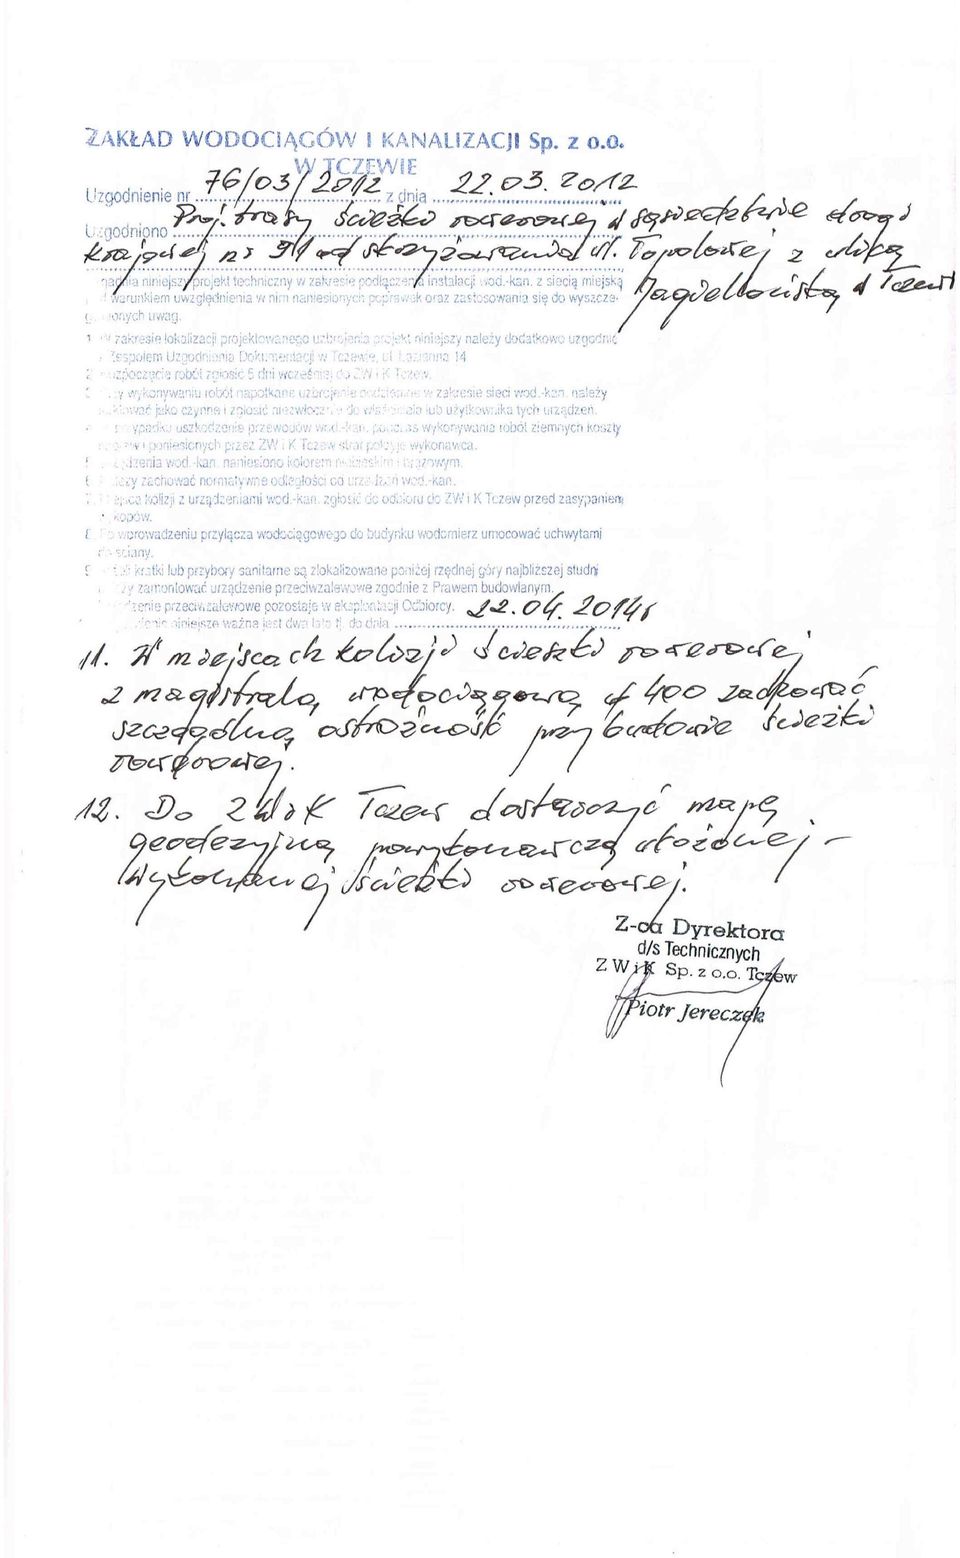 ZAKŁAD WODOCIĄGÓW I KANALIZACJI Sp. z o.o.
W TCZEWIE
Uzgodnienie nr 76/03/2012 z dnia 22.03.2012
Uzgodniono Proj. trasy ścieżki rowerowej w sąsiedztwie drogi
krajowej nr 91 od skrzyżowania ul. Topolowej z ulicą
Jagiellońską w Tczewie
niniejszy projekt techniczny w zakresie podłączenia instalacji wod.-kan. z siecią miejską
warunkiem uwzględnienia w nim naniesionych poprawek oraz zastosowania się do wyszcze-
uwag.
1 W zakresie lokalizacji projektowanego uzbrojenia projekt niniejszy należy dodatkowo uzgodnić
Zespołem Uzgodnienia Dokumentacji w Tczewie, ul. 14
rozpoczęcie robót zgłosić 5 dni wcześniej do ZW i K Tczew.
wykonywaniu robót napotkane uzbrojenie w zakresie sieci wod.-kan. należy
jako czynne i zgłosić niezwłocznie do lub użytkownika tych urządzeń.
uszkodzenie przewodów wod.-kan. podczas wykonywania robót ziemnych koszty
poniesionych przez ZW i K Tczew wykonawca.
wod.-kan. naniesiono kolorem niebieskim i brązowym.
zachować normatywne odległości od urządzeń wod.-kan.
kolizji z urządzeniami wod.-kan. zgłosić do odbioru do ZW i K Tczew przed zasypaniem
wykopów.
wprowadzeniu przyłącza wodociągowego do budynku wodomierz umocować uchwytami
ściany.
kratki lub przybory sanitarne są zlokalizowane poniżej rzędnej góry najbliższej studni
zamontować urządzenie przeciwzalewowe zgodnie z Prawem budowlanym.
przeciwzalewowe pozostaje w eksploatacji Odbiorcy.
niniejsze ważne jest dwa lata tj. do dnia 22.04.2014r
11. W miejscach kolizji ścieżki rowerowej
z magistralą wodociągową ø 400 zachować
szczególną ostrożność przy budowie ścieżki
rowerowej.
12. Do ZWiK Tczew dostarczyć mapę
geodezyjną powykonawczą ułożonej -
wykonanej ścieżki rowerowej.
Z-ca Dyrektora
d/s Technicznych
Z W i K Sp. z o.o. Tczew
Piotr Jereczek